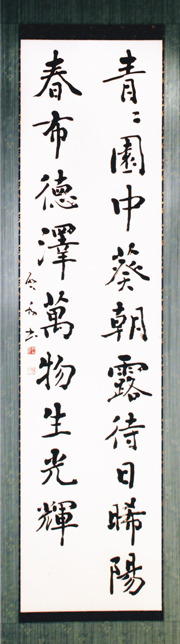 青〻園中葵朝露待日晞陽
春布德澤萬物生光輝